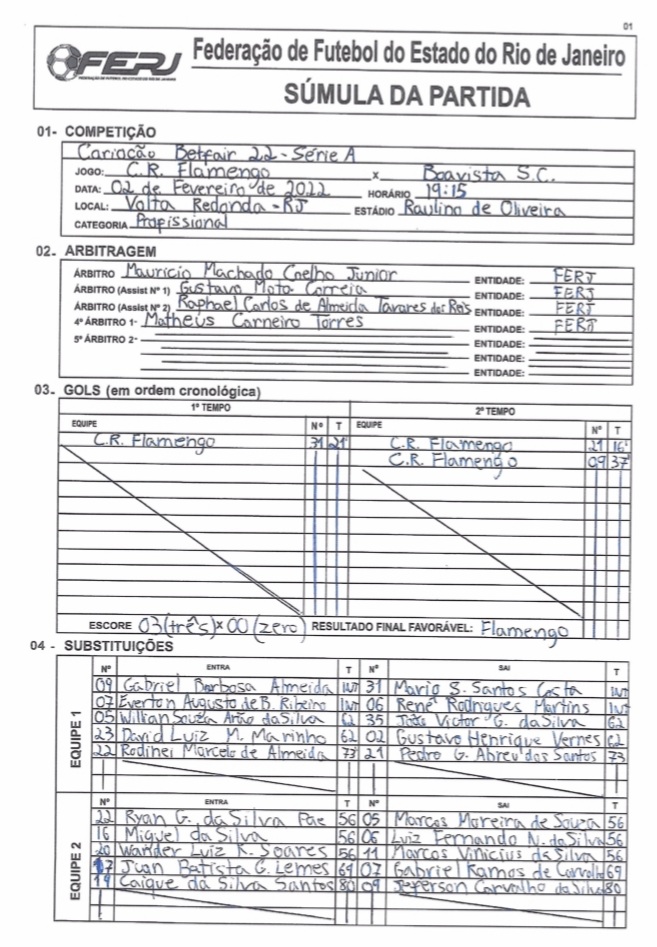 01
FERJ
FEDERAÇÃO DE FUTEBOL DO ESTADO DO RIO DE JANEIRO
Federação de Futebol do Estado do Rio de Janeiro
SÚMULA DA PARTIDA
01- COMPETIÇÃO
Cariocão Betfair 22 - Série A
JOGO: C.R. Flamengo x Boavista S.C.
DATA: 02 de Fevereiro de 2022 HORÁRIO 19:15
LOCAL: Volta Redonda - RJ ESTÁDIO Raulino de Oliveira
CATEGORIA Profissional
02. ARBITRAGEM
ÁRBITRO Maurício Machado Coelho Junior ENTIDADE: FERJ
ÁRBITRO (Assist Nº 1) Gustavo Mota Correia ENTIDADE: FERJ
ÁRBITRO (Assist Nº 2) Raphael Carlos de Almeida Tavares dos Reis ENTIDADE: FERJ
4º ÁRBITRO 1- Matheus Carneiro Torres ENTIDADE: FERJ
5º ÁRBITRO 2- ENTIDADE:
ENTIDADE:
03. GOLS (em ordem cronológica)
1º TEMPO 2º TEMPO
EQUIPE Nº T EQUIPE Nº T
C.R. Flamengo 31 21' C.R. Flamengo 21 16'
C.R. Flamengo 09 37'
ESCORE 03 (três) x 00 (zero) RESULTADO FINAL FAVORÁVEL: Flamengo
04 - SUBSTITUIÇÕES
EQUIPE 1
Nº ENTRA T Nº SAI T
09 Gabriel Barbosa Almeida INT 31 Mario S. Santos Costa INT
07 Everton Augusto de B. Ribeiro INT 06 Renê Rodrigues Martins INT
05 Willian Souza Arão da Silva 62 35 João Victor G. da Silva 62
23 David Luiz M. Marinho 62 02 Gustavo Henrique Vernes 62
22 Rodinei Marcelo de Almeida 73 21 Pedro G. Abreu dos Santos 73
EQUIPE 2
Nº ENTRA T Nº SAI T
22 Ryan G. da Silva Pae 56 05 Marcos Moreira de Souza 56
16 Miguel da Silva 56 06 Luiz Fernando N. da Silva 56
20 Wander Luiz K. Soares 56 11 Marcos Vinicius da Silva 56
17 Juan Batista G. Lemes 69 07 Gabriel Ramos de Carvalho 69
19 Caique da Silva Santos 80 09 Jeferson Carvalho da Silva 80